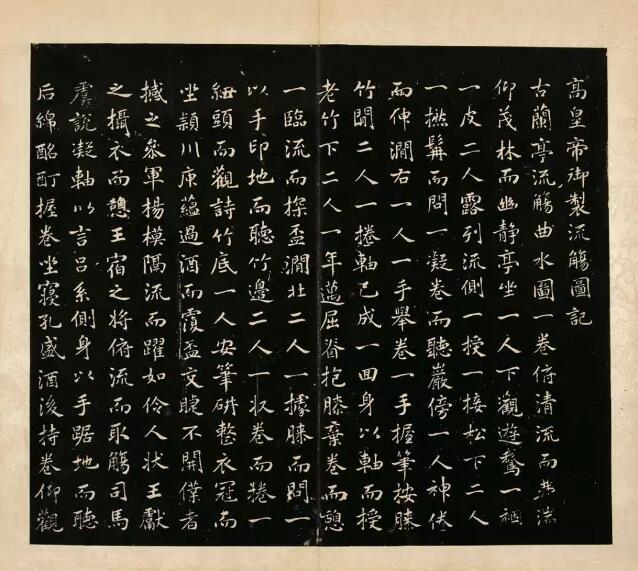 高皇帝御製流觴圖記
古蘭亭流觴曲水圖一卷俯清流而流
仰茂林而幽静亭坐一人下觀遊鵞一裀
一皮二人露列流側一授一接松下二人
一撚髯而問一凝卷而聽巖傍一人神倦
而伸澗右一人一手舉卷一手握筆按膝
竹間二人一捲軸已成一回身以軸而授
老竹下二人一年邁屈脊抱膝棄卷而憩
一臨流而探盃澗北二人一據膝而問一
以手印地而聽竹邊二人一収卷而捲一
紐頭而觀詩竹底一人安筆硏整衣冠而
坐潁川庾蘊過酒而覆盃交睫不開僕者
撼之叅軍楊模隔流而躍如伶人狀王獻
之攝衣而憩王宿之將俯流而取觴司馬
虞說凝軸以言吕系側身以手踞地而聽
后綿酩酊握卷坐寢孔盛酒後持卷仰觀